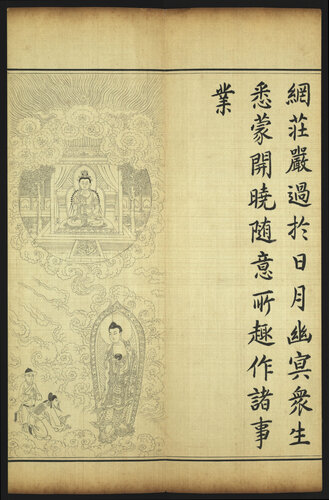 網莊嚴過於日月幽冥衆生
悉蒙開曉随意所趣作諸事
業